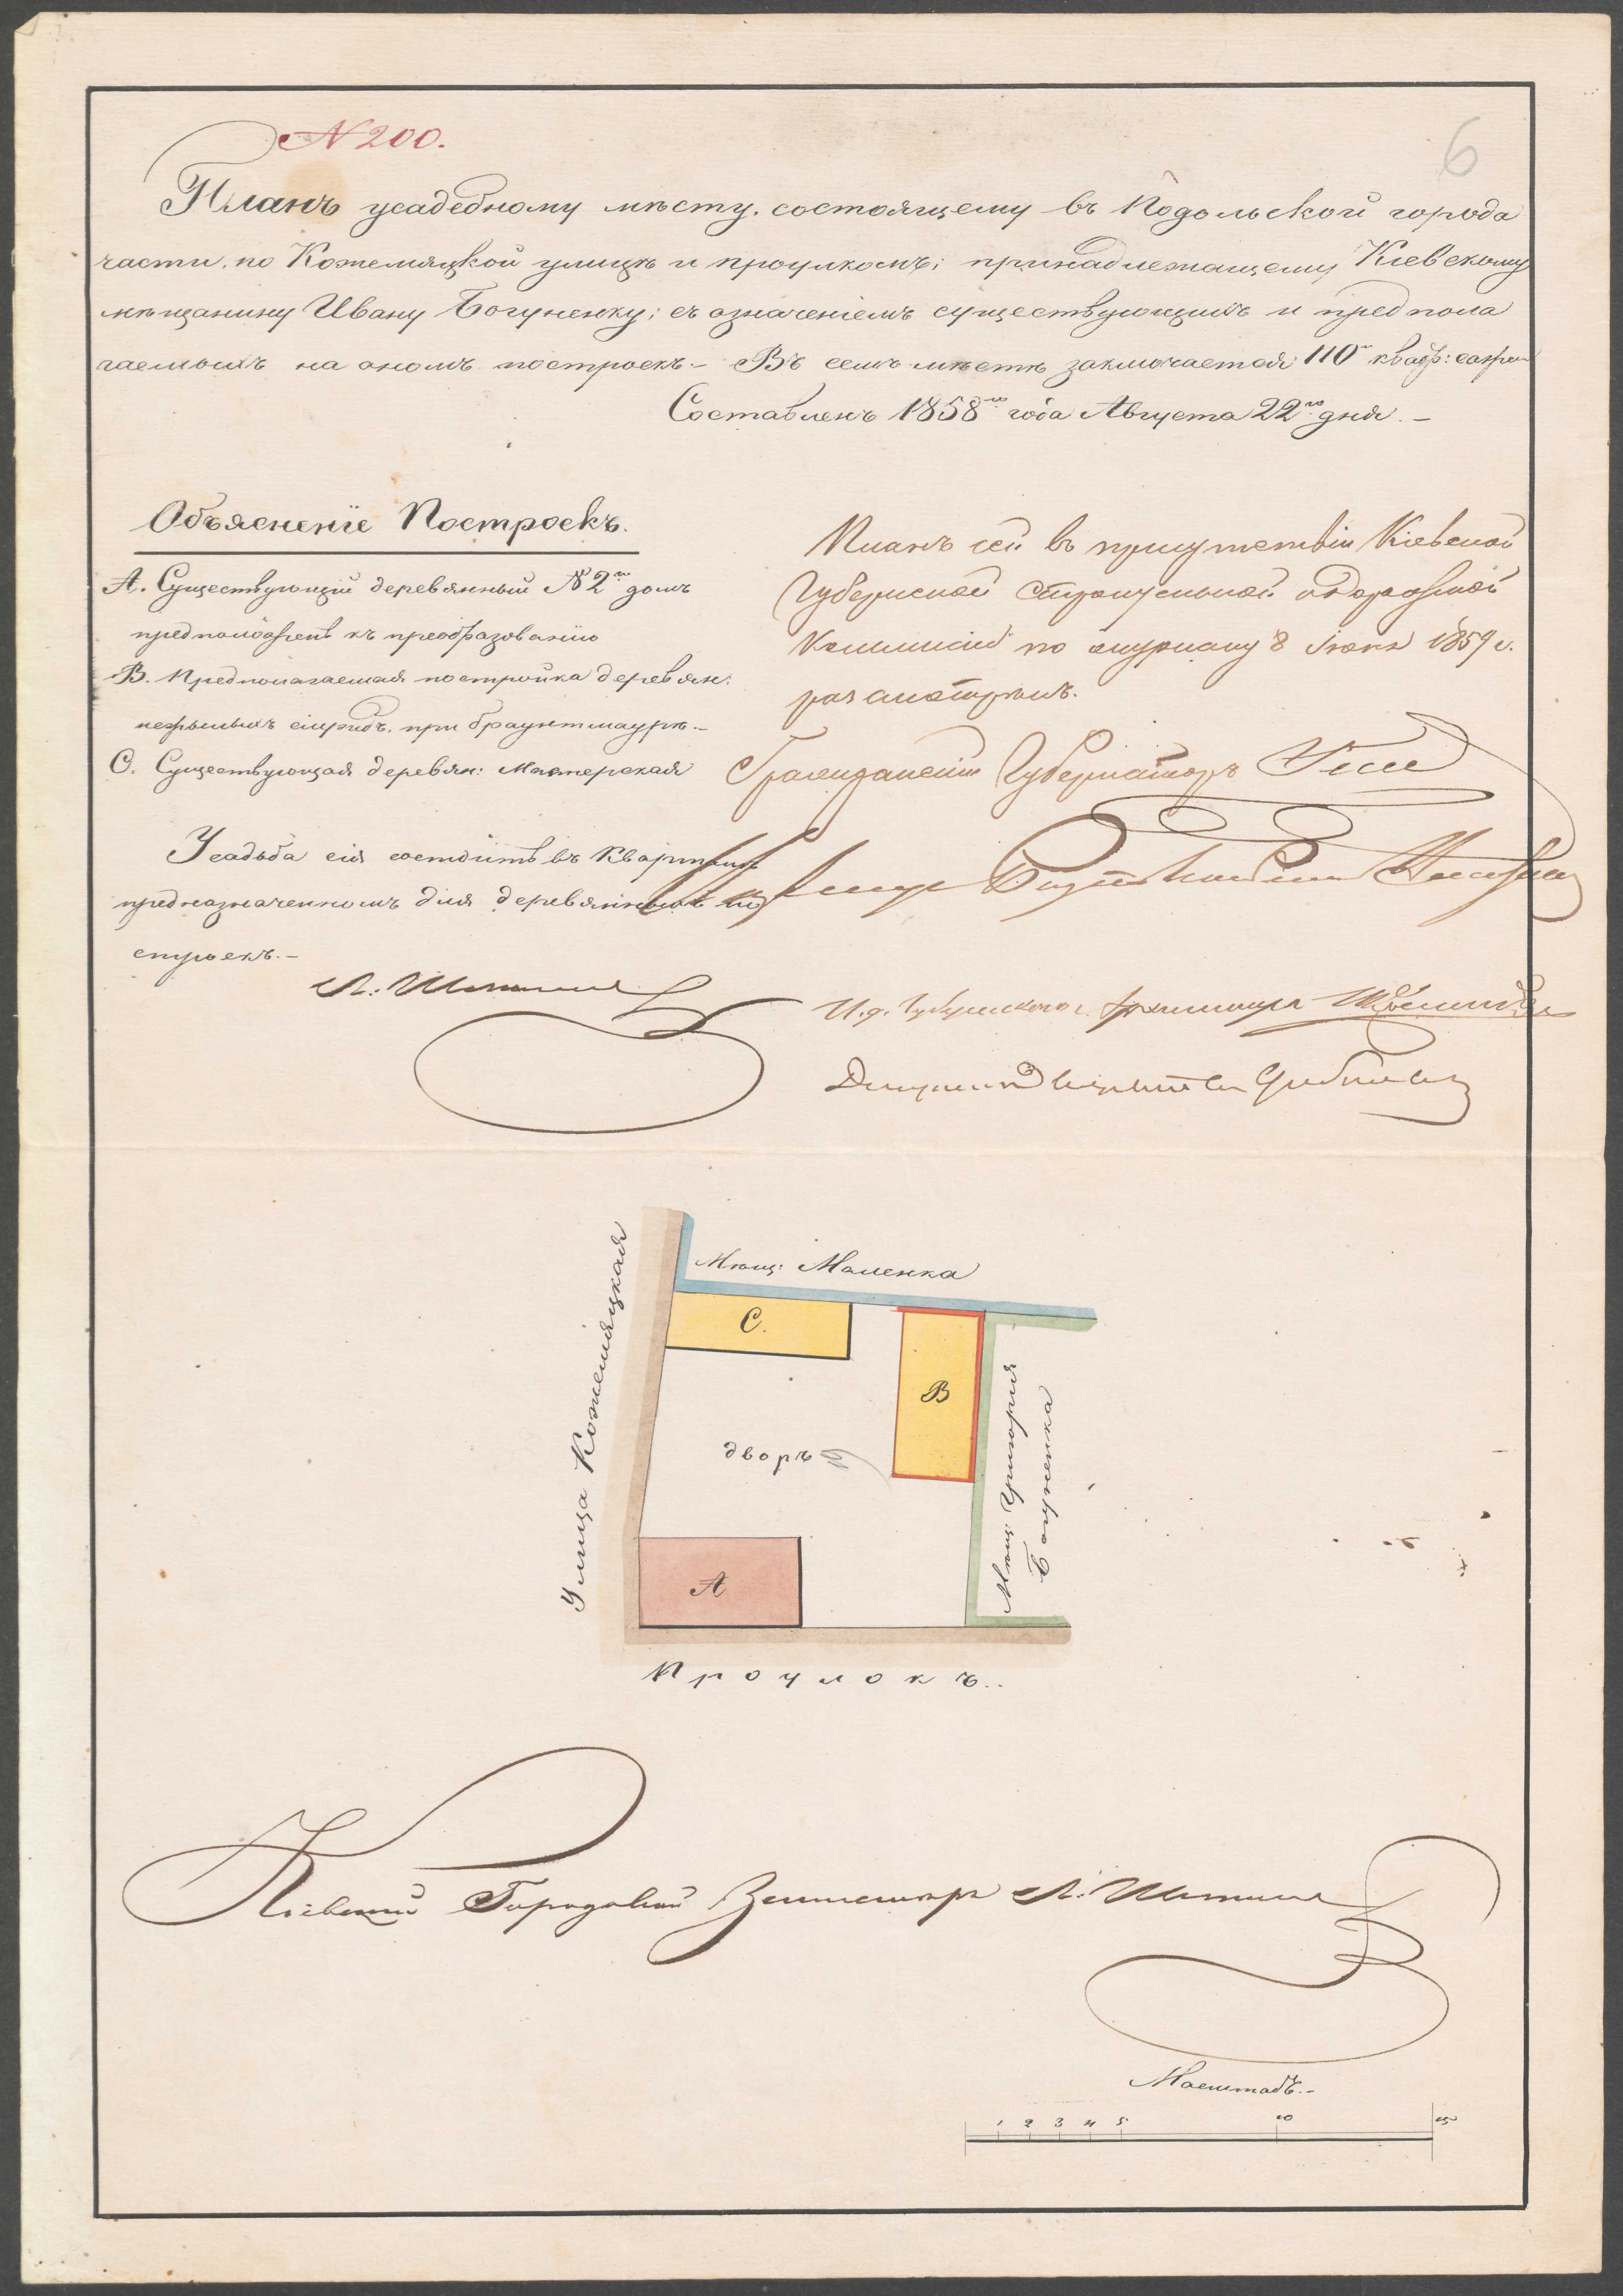 N 200.
6
Планъ усадебному мѣсту, состоящему въ Подольской города
части, по Кожемяцкой улицѣ и проулкомъ; принадлежащему Кіевскому
мѣщанину Ивану Богуненку; съ означеніемъ существующихъ и предпола
гаемыхъ на ономъ построекъ.- Въ семъ мѣстѣ заключается 110 квадр: сажен
Составленъ 1858го года Августа 22го дня.-
Объясненіе Построекъ.
А. Существующій деревянный N 2й домъ
предположенъ къ преобразованію
В. Предполагаемая постройка деревян:
нежилыхъ службъ, при брауктмаурѣ.-
С. Существующая деревян: Мастерская
Усадьба сія состоитъ въ Кварталѣ
предназначенномъ для деревянныхъ по
строекъ.-
Планъ сей въ присутствіи Кіевской
Губернской Строительной и Дорожной
Коммисіи по журналу 8 Іюня 1859 г.
разсмотрѣнъ.
Гражданскій Губернаторъ Гессе
И. д. Губернскаго Архитектора
Улица Кожемяцкая
Мѣщ: Маленка
С.
В
дворъ
Мѣщ: Григорія
Богуненка
А
Проулокъ..
Кіевскій Городовой Землемѣръ Л.
Масштабъ.-
1 2 3 4 5 10 15